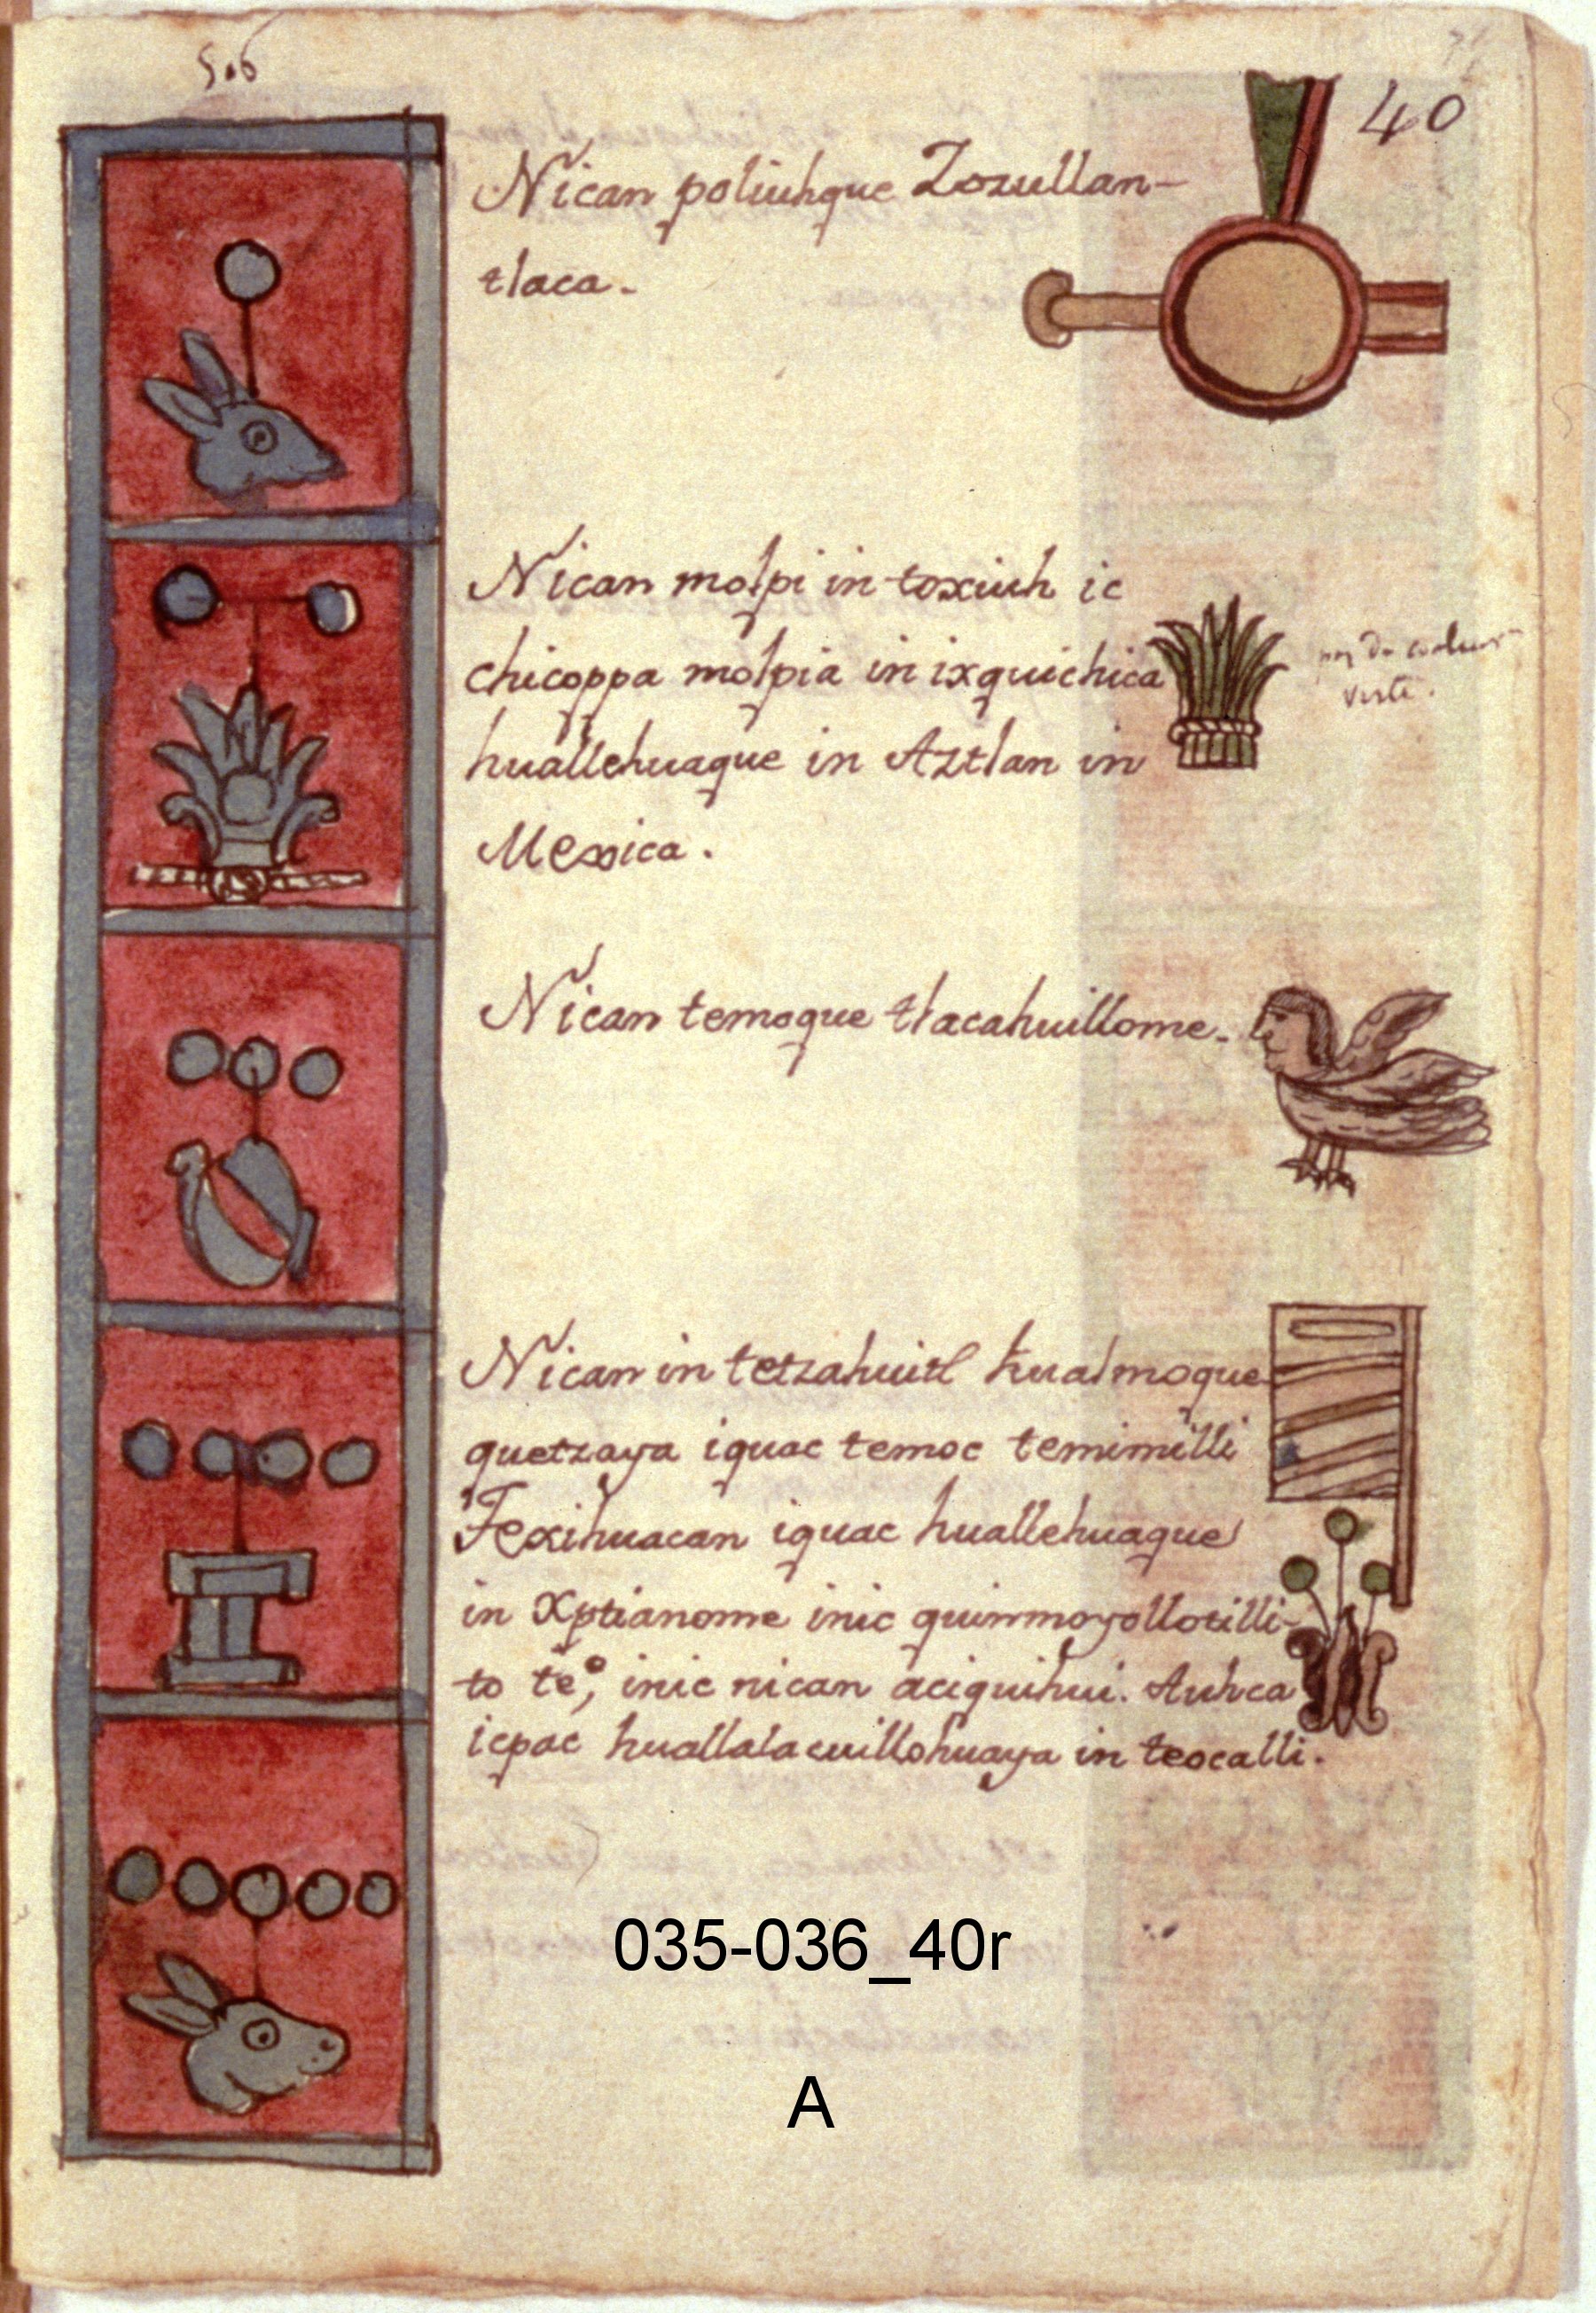 5.6
40
Nican poliuhque Zozullan-
tlaca.
Nican molpi in toxiuh ic
chicoppa molpia in ixquichica
huallehuaque in Aztlan in
Mexica.
verte.
Nican temoque tlacahuillome.
Nican in tetzahuitl hualmoque
quetzaya iquac temoc temimilli
Texihuacan iquac huallehuaque
in Xptianome inic quinmoyollotilli-
to te,º inic nican aciquihui. Auh ca
icpac huallalacuillohuaya in teocalli.
035-036_40r
A